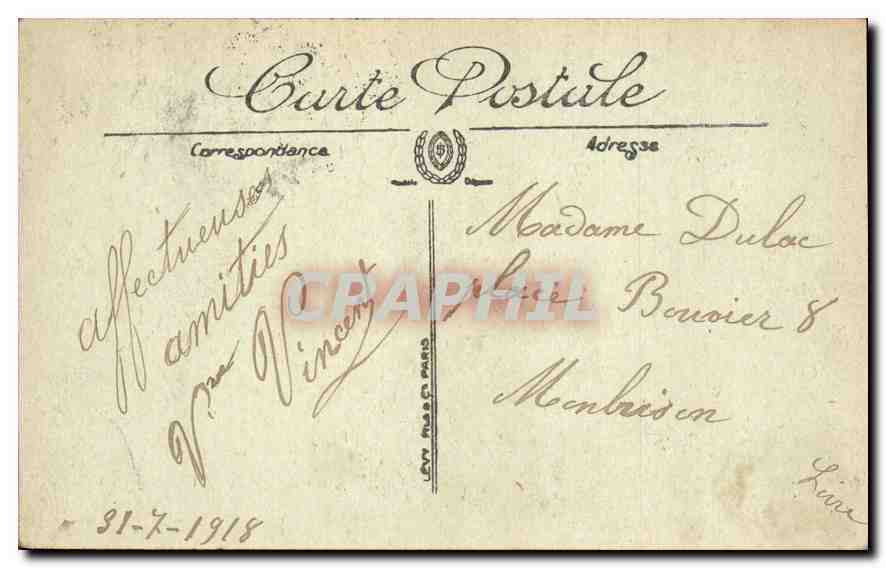 Carte Postale
Correspondance
Adresse
affectueuses
amitiés
Vve Vincent
31-7-1918
Madame Dulac
place Bouvier 8
Monbrison
Loire
LÉVY Fils & Cie PARIS
CPARAMA